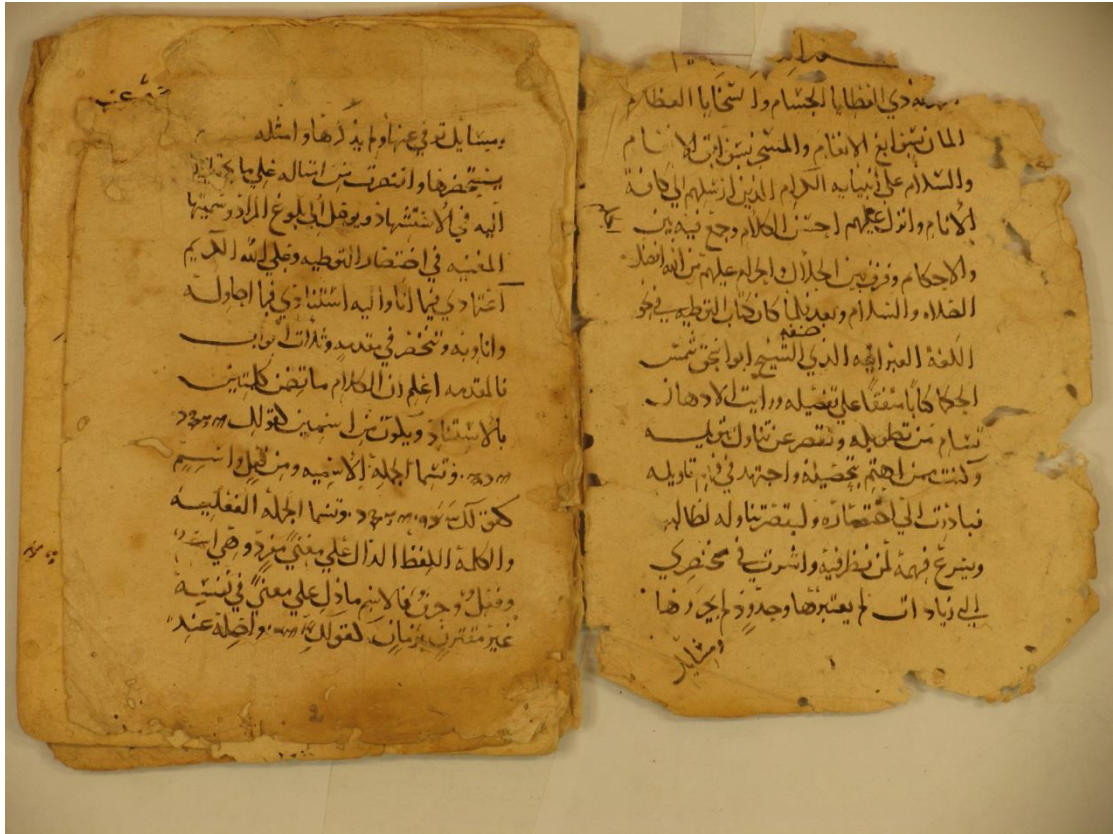 ذي العطايا الجسام والسخايا العظام
المان بسوابغ الانعام والمنجي بسوابق الانسام
والسلام علي انبيايه الكرام الذين ارسلهم الي كافة
الانام وانزل عليهم احسن الكلام وجمع فيه بين
والاحكام وفرق بين الحلال والحرام عليهم من الله افضل
الصلاه والسلام وبعد فلما كان كتاب التوطيه في نحو
اللغة العبرانيه الذي صنفه الشيخ ابو اسحق شمس
الحكما كتابا متفقا علي تفضيله ورايت الاذهان
تسام من تطويله وتقصر عن تناول
وكنت ممن اهتم بتحصيله واجتهد في فهم تاويله
فبادرت الي اختصاره وليقصر تناوله لطالبه
ويسرع فهمه لمن نظر فيه واشرت في مختصري
الي زيادات لم يعتبرها وحدود لم يحررها
ومسايل
ومسايل توفي عنها ولم يذكرها وامثله
يستحضرها واقتصرت من امثاله علي ما يحتاج
اليه في الاستشهاد ويوصل الي بلوغ المراد وسميتها
المغنيه في اختصار التوطيه وعلي الله الكريم
اعتمادي فيما انا واليه استنادي فيما احاوله
واناويه وتنحصر في مقدمه وثلاث ابواب
فالمقدمه اعلم ان الكلام ما تضمن كلمتين
بالاسناد ويكون من اسمين كقولك
وتسما الجملة الاسميه ومن فعل واسم
كقولك وتسما الجمله الفعليه
والكلمة اللفظ الدال علي معني مفرد وهي اسم
وفعل وحرف فالاسم ما دل علي معني في نفسه
غير مقترن بزمان كقولك واصله عند
2